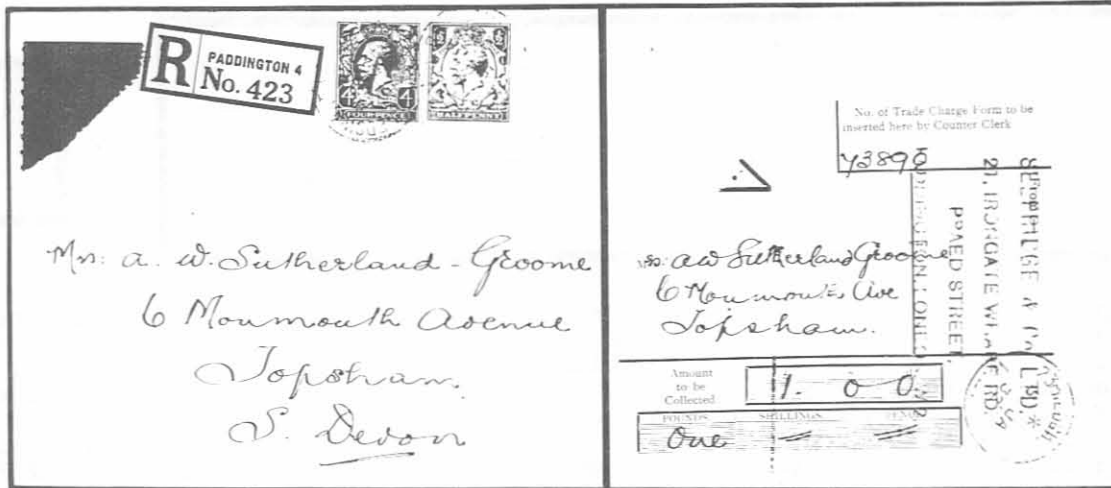 R PADDINGTON 4
No. 423
4 4
FOURPENCE
½ ½
HALFPENNY
Mrs: A. W. Sutherland-Groome
6 Monmouth Avenue
Topsham.
S. Devon
No. of Trade Charge Form to be
inserted here by Counter Clerk
Y3890
Mrs: A W Sutherland Groome
6 Monmouth Ave
Topsham.
& Co. LTD.
21, IRONGATE WHARF RD.
PRAED STREET
Amount
to be
Collected
1. 0 0.
POUNDS. SHILLINGS. PENCE
One = =